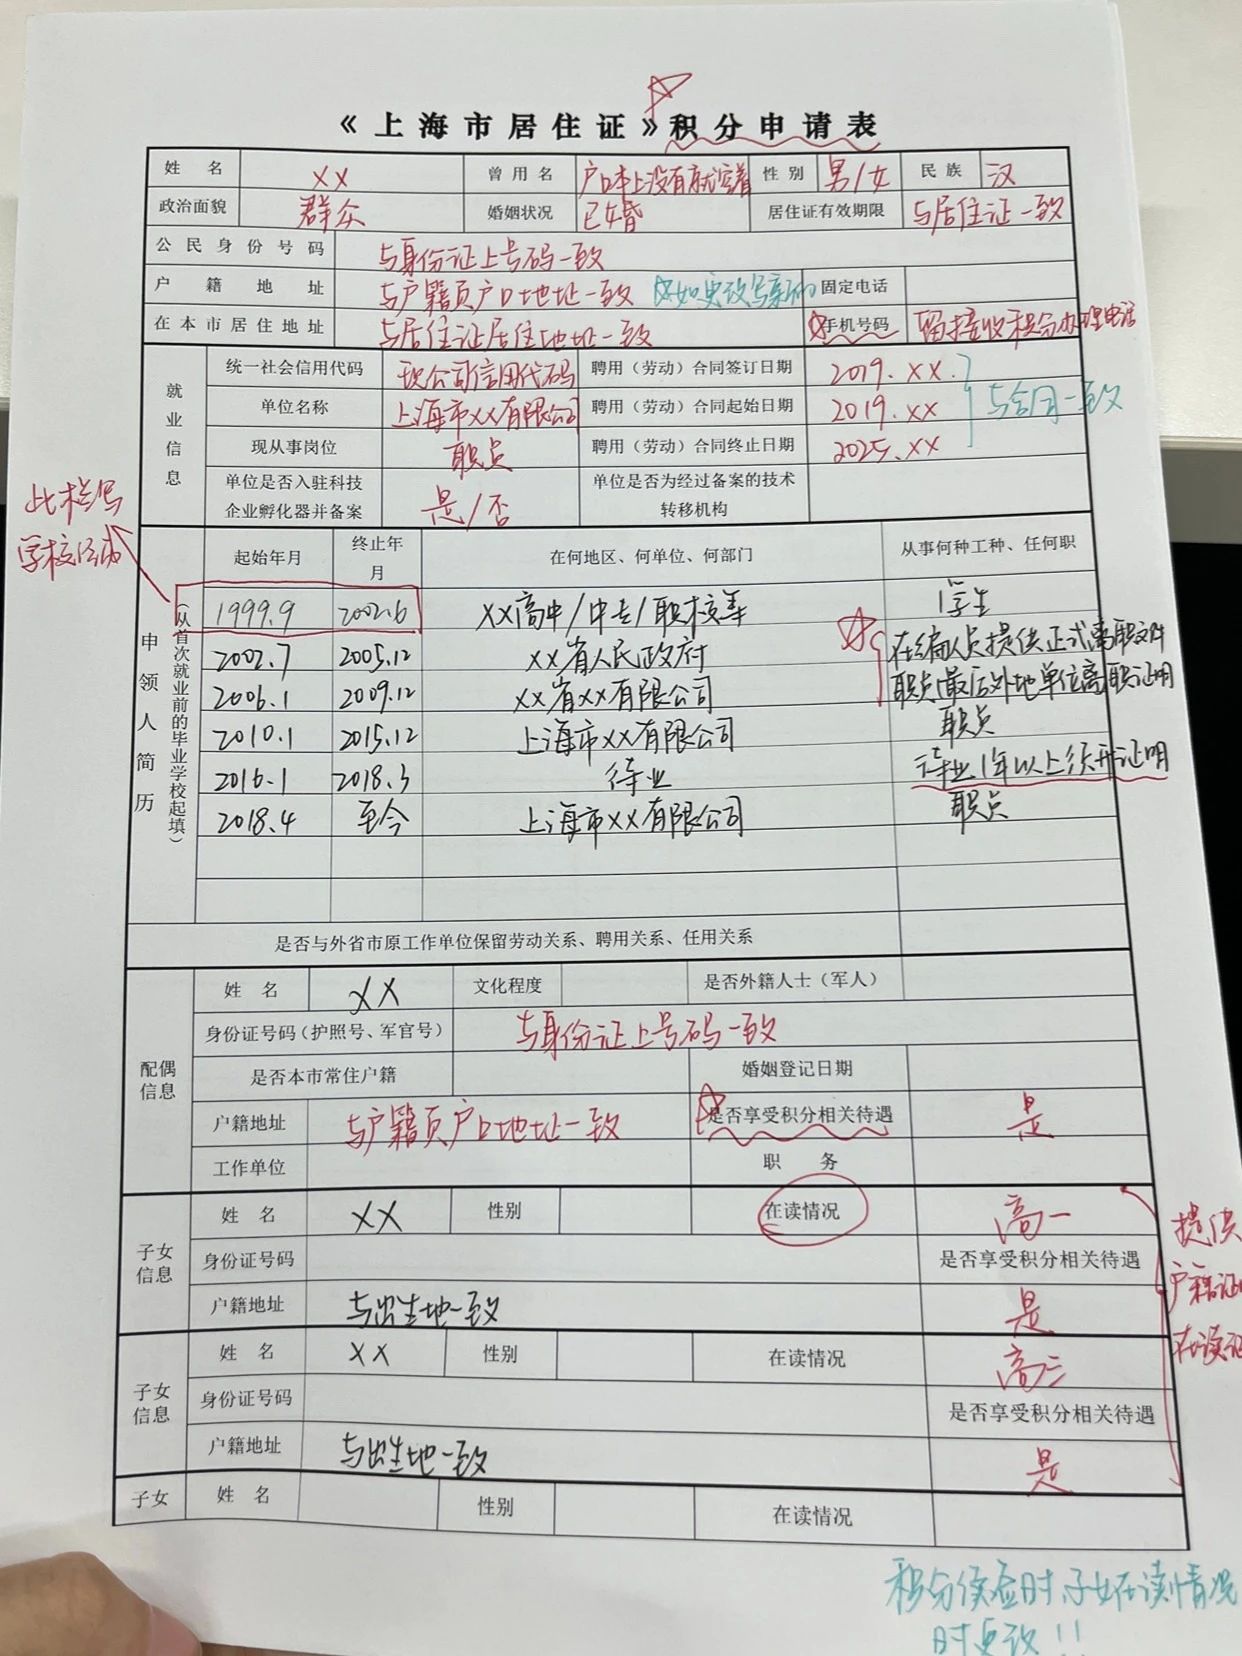 《上海市居住证》积分申请表
姓 名 XX 曾用名 户口本上没有就空着 性别 男/女 民族 汉
政治面貌 群众 婚姻状况 已婚 居住证有效期限 与居住证一致
公民身份号码 与身份证上号码一致
户籍地址 与户籍页户口地址一致 ☆如更改写新的 固定电话
在本市居住地址 与居住证居住地址一致 ☆手机号码 留接收积分办理电话
就业信息
统一社会信用代码 现公司信用代码 聘用（劳动）合同签订日期 2019.XX.
单位名称 上海市XX有限公司 聘用（劳动）合同起始日期 2019.XX 与合同一致
现从事岗位 职员 聘用（劳动）合同终止日期 2025.XX
单位是否入驻科技企业孵化器并备案 是/否 单位是否为经过备案的技术转移机构
此栏写
学校
申领人简历
（从首次就业前的毕业学校起填）
起始年月 终止年月 在何地区、何单位、何部门 从事何种工种、任何职
1999.9 2002.6 XX高中/中专/职校等 学生
2002.7 2005.12 XX省人民政府 在编人员提供正式离职文件
2006.1 2009.12 XX省XX有限公司 职员/最后外地单位离职证明
2010.1 2015.12 上海市XX有限公司 职员
2016.1 2018.3 待业 待业1年以上须开证明
2018.4 至今 上海市XX有限公司 职员
是否与外省市原工作单位保留劳动关系、聘用关系、任用关系
配偶信息
姓 名 XX 文化程度 是否外籍人士（军人）
身份证号码（护照号、军官号） 与身份证上号码一致
是否本市常住户籍 婚姻登记日期
户籍地址 与户籍页户口地址一致 ☆是否享受积分相关待遇 是
工作单位 职 务
子女信息
姓 名 XX 性别 在读情况 高一
身份证号码 是否享受积分相关待遇
户籍地址 与出生地一致 是
提供
户籍证
在读证
子女信息
姓 名 XX 性别 在读情况 高三
身份证号码 是否享受积分相关待遇
户籍地址 与出生地一致 是
子女 姓 名 性别 在读情况
积分续签时,子女在读情况
时更改!!